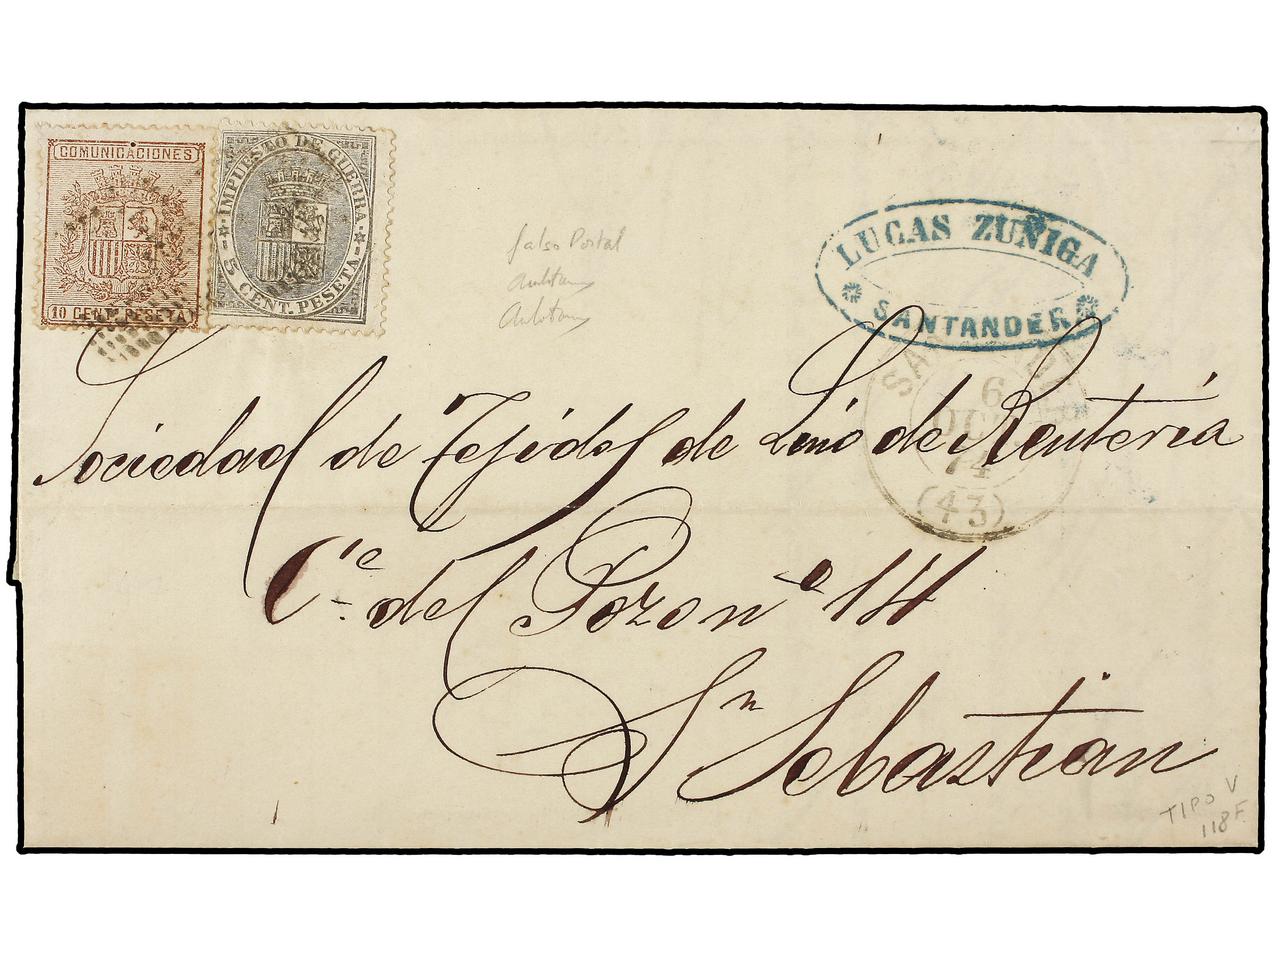 COMUNICACIONES
10 CENT. PESETA
IMPUESTO DE GUERRA
5 CENT. PESETA
falso Postal
LUCAS ZUÑIGA
SANTANDER
6
OCT.
74
(43)
Sociedad de Tejidos de Lino de Renteria
Ce. del Pozo nº 14
Sn Sebastian
TIPO V
118F